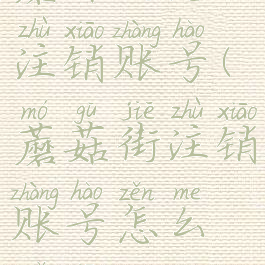 zhù xiāo zhàng hào
注销账号(
mó gū jiē zhù xiāo
蘑菇街注销
zhàng hào zěn me
账号怎么